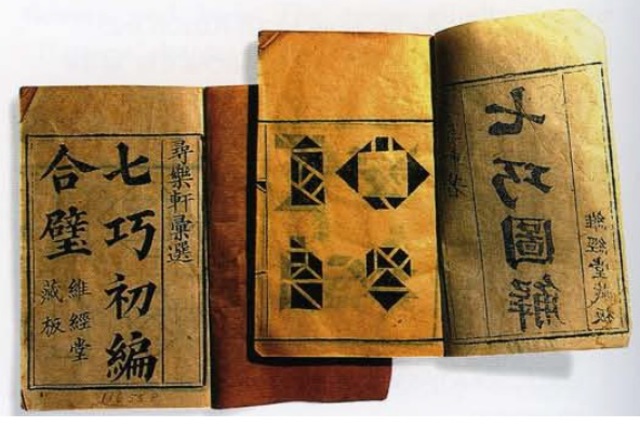 尋樂軒彙選
七巧初編
合璧
維經堂
藏板
七巧圖解
維經堂藏板